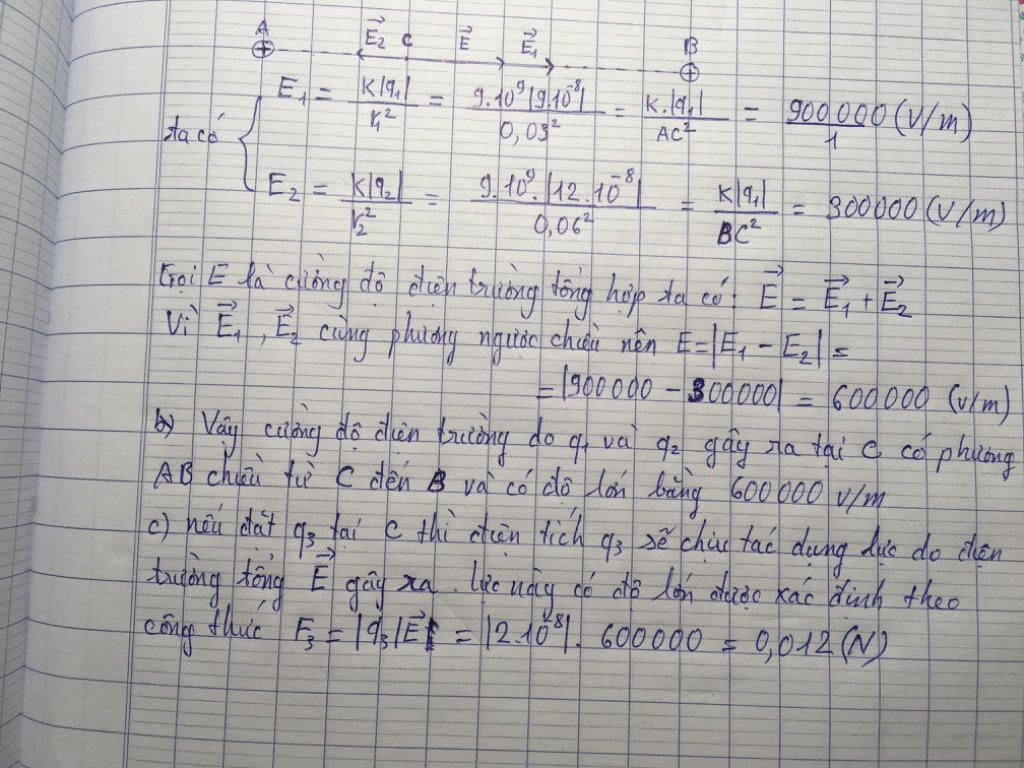 A E⃗₂ C E⃗ E⃗₁ B
ta có { E₁ = K|q₁| / r₁² = 9.10⁹|9.10⁻⁸| / 0,03² = K.|q₁| / AC² = 900000 / 1 (V/m)
E₂ = K|q₂| / r₂² = 9.10⁹.|12.10⁻⁸| / 0,06² = K|q₁| / BC² = 300000 (V/m)
Gọi E là cường độ điện trường tổng hợp ta có: E⃗ = E⃗₁ + E⃗₂
Vì E⃗₁, E⃗₂ cùng phương ngược chiều nên E = |E₁ - E₂| =
= |900000 - 300000| = 600000 (v/m)
b) Vậy cường độ điện trường do q₁ và q₂ gây ra tại C có phương
AB chiều từ C đến B và có độ lớn bằng 600000 v/m
c) nếu đặt q₃ tại C thì điện tích q₃ sẽ chịu tác dụng lực do điện
trường tổng E⃗ gây ra. lực này có độ lớn được xác định theo
công thức F₃ = |q₃|E⃗| = |2.10⁻⁸|. 600000 = 0,012 (N)